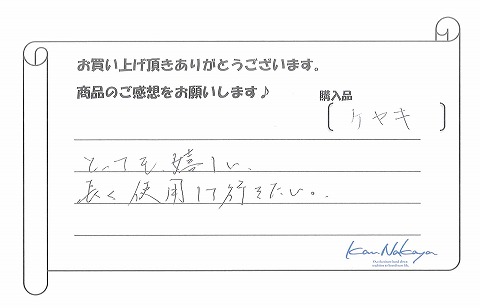 お買い上げ頂きありがとうございます。
商品のご感想をお願いします♪
購入品
[ ケヤキ ]
とっても、嬉しい、
長く使用して行きたい。
Kan Nakaya